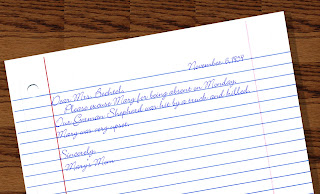 November 6, 1959
Dear Mrs. Bedried,
Please excuse Mary for being absent on Monday.
Our German Shepherd was hit by a truck and killed.
Mary was very upset.
Sincerely,
Mary's Mom